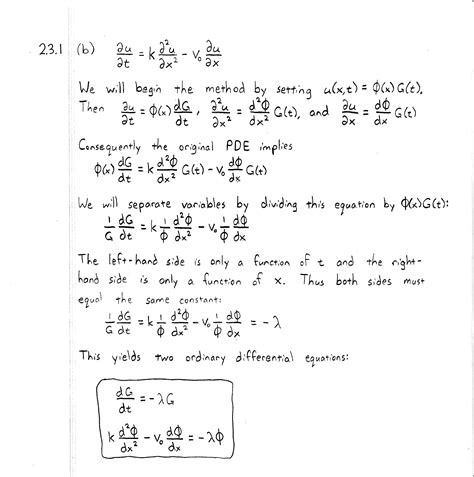 2.3.1 (b) ∂u/∂t = k ∂²u/∂x² - v₀ ∂u/∂x
We will begin the method by setting u(x,t) = Φ(x)G(t).
Then ∂u/∂t = Φ(x) dG/dt, ∂²u/∂x² = d²Φ/dx² G(t), and ∂u/∂x = dΦ/dx G(t)
Consequently the original PDE implies
Φ(x) dG/dt = k d²Φ/dx² G(t) - v₀ dΦ/dx G(t)
We will separate variables by dividing this equation by Φ(x)G(t):
1/G dG/dt = k 1/Φ d²Φ/dx² - v₀ 1/Φ dΦ/dx
The left-hand side is only a function of t and the right-
hand side is only a function of x. Thus both sides must
equal the same constant:
1/G dG/dt = k 1/Φ d²Φ/dx² - v₀ 1/Φ dΦ/dx = -λ
This yields two ordinary differential equations:
dG/dt = -λG
k d²Φ/dx² - v₀ dΦ/dx = -λΦ